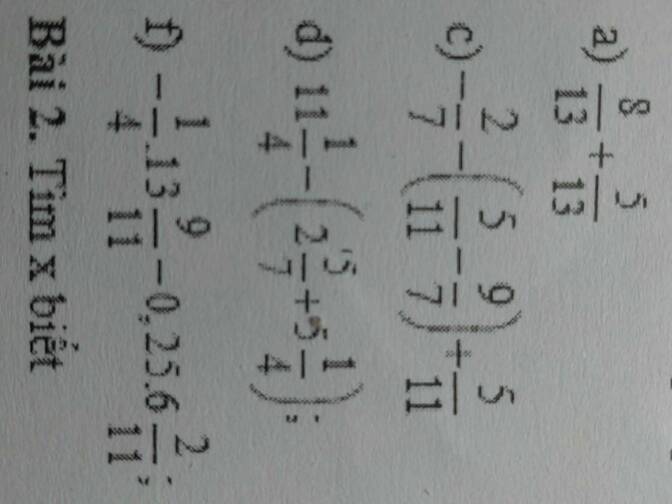 a) 8/13 + 5/13
c) -2/7 - (5/11 - 9/7) + 5/11
d) 11 1/4 - (2 5/7 + 5 1/4);
f) -1/4 . 13 9/11 - 0,25.6 2/11;
Bài 2. Tìm x biết